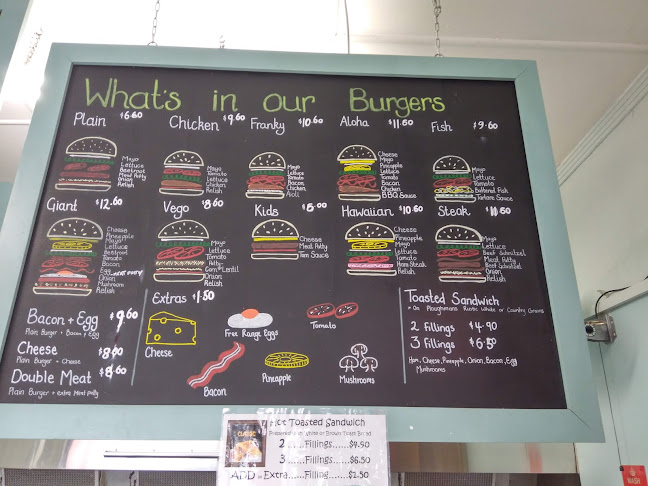 What's in our Burgers
Plain $6.60
Mayo
Lettuce
Beetroot
Meat Patty
Onion
Relish
Chicken $9.60
Mayo
Tomato
Lettuce
Chicken
Relish
Franky $10.60
Mayo
Lettuce
Tomato
Bacon
Chicken
Aioli
Aloha $11.60
Cheese
Mayo
Pineapple
Lettuce
Tomato
Bacon
Chicken
BBQ Sauce
Fish $9.60
Mayo
Lettuce
Tomato
Battered Fish
Tartare Sauce
Giant $12.60
Cheese
Pineapple
Mayo
Lettuce
Beetroot
Tomato
Bacon
Egg
Onion
Mushroom
Relish
Vego $8.60
Mayo
Lettuce
Tomato
Patty-
Corn & Lentil
Onion
Relish
Kids $5.00
Cheese
Meat Patty
Tom Sauce
Hawaiian $10.60
Cheese
Pineapple
Mayo
Lettuce
Tomato
Ham Steak
Relish
Steak
Mayo
Lettuce
Beef Schnitzel
Meat Patty
Beef Schnitzel
Onion
Relish
Bacon + Egg $9.60
Plain Burger + Bacon + Egg
Cheese $8.60
Plain Burger + Cheese
Double Meat $8.60
Plain Burger + extra Meat patty
Extras $1.50
Cheese
Free Range Eggs
Tomato
Bacon
Pineapple
Mushrooms
Toasted Sandwich
* On Ploughmans Rustic White or Country Grains
2 Fillings $4.90
3 Fillings $6.50
Ham, Cheese, Pineapple, Onion, Bacon, Egg
Mushrooms
Hot Toasted Sandwich
White or Brown Toast Bread
2......Fillings......$4.50
3......Fillings......$6.50
ADD - Extra......Filling......$1.50